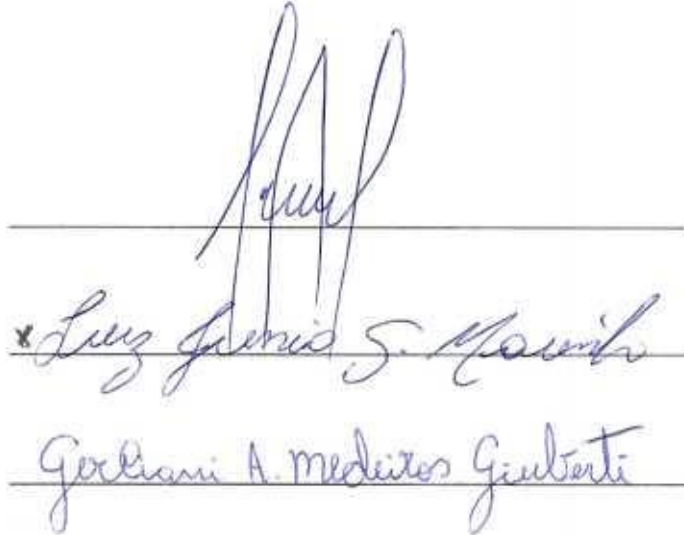 x Luiz Junio S. Marinho
Gerliani A. Medeiros Giuberti